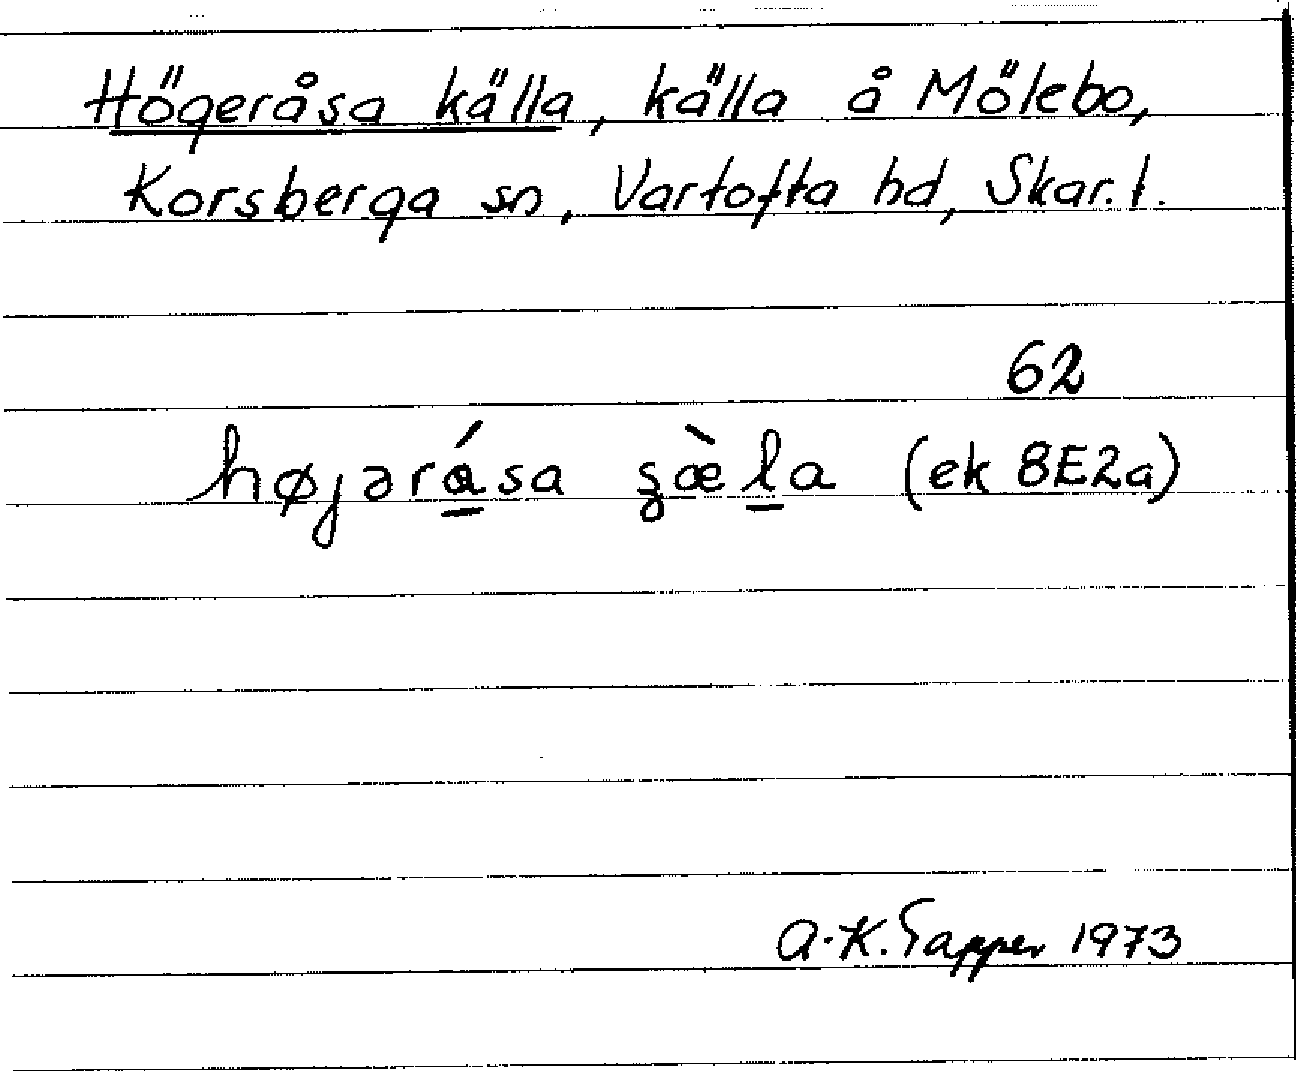 Högeråsa källa, källa å Mölebo,
Korsberga sn, Vartofta hd, Skar. l.
62
højərása ʂæ̀la (ek 8E2a)
A-K. Tapper 1973